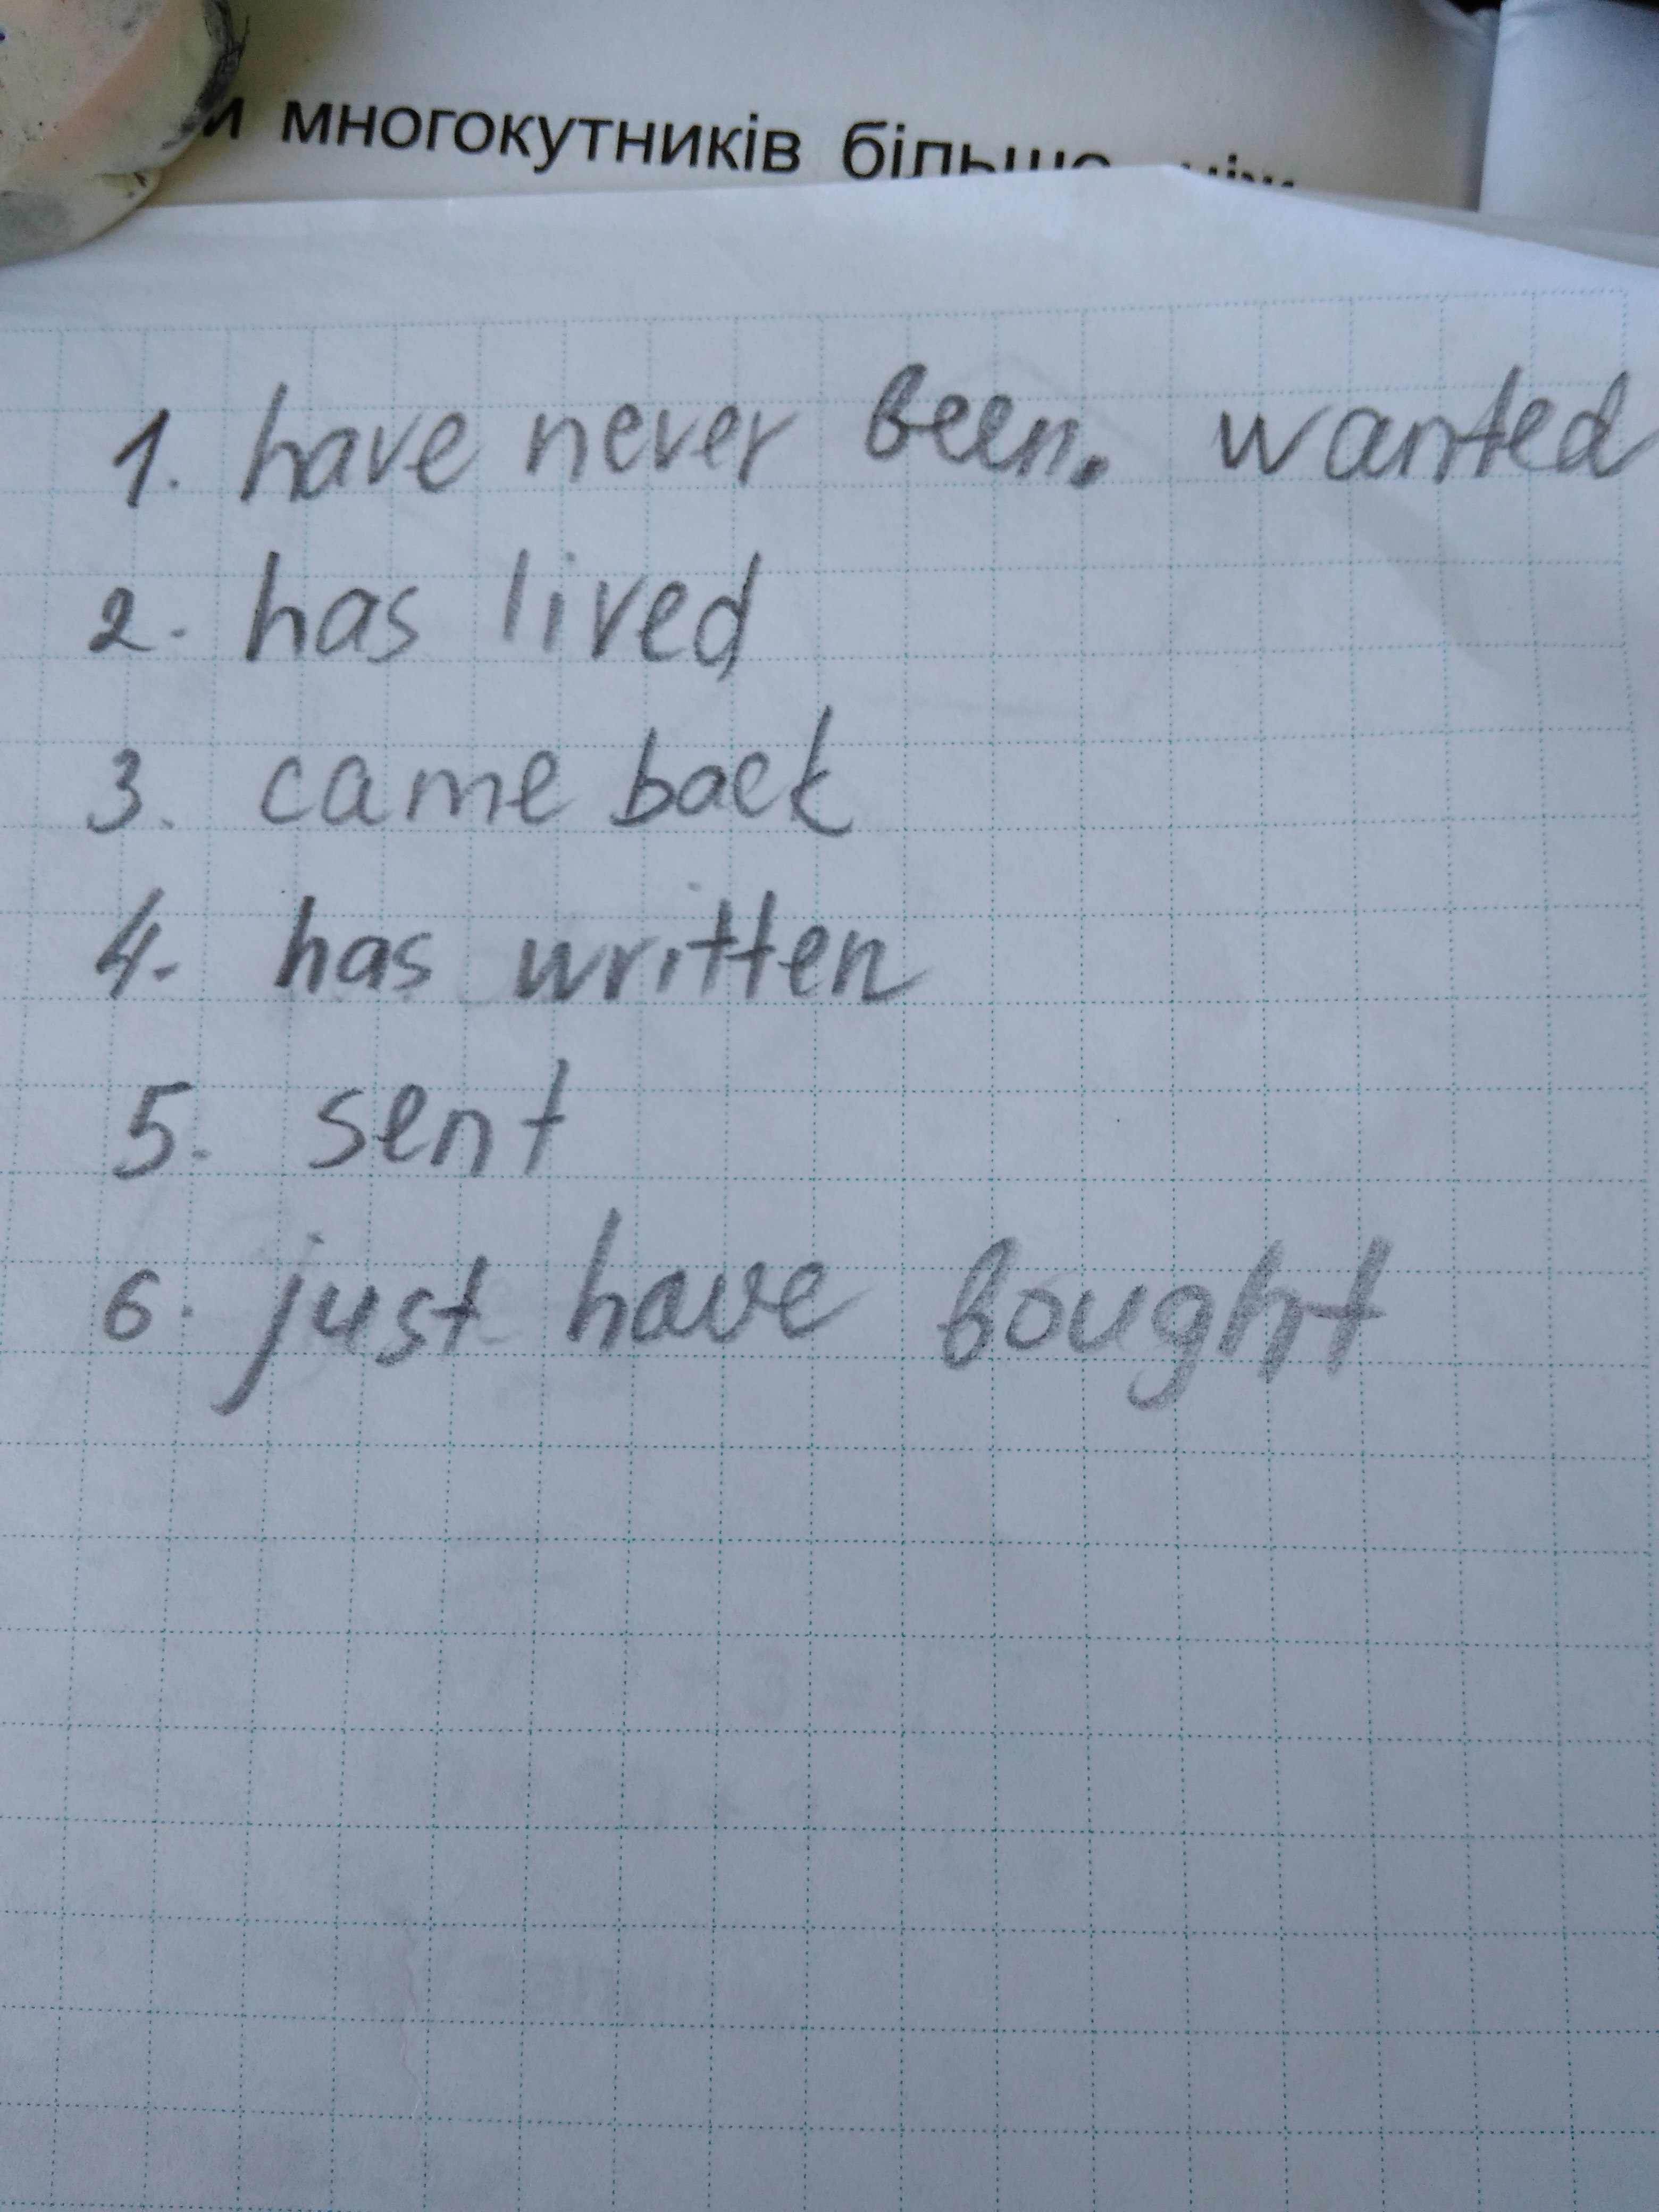 многокутників більше ніж
1. have never been. wanted
2. has lived
3. came back
4. has written
5. sent
6. just have bought